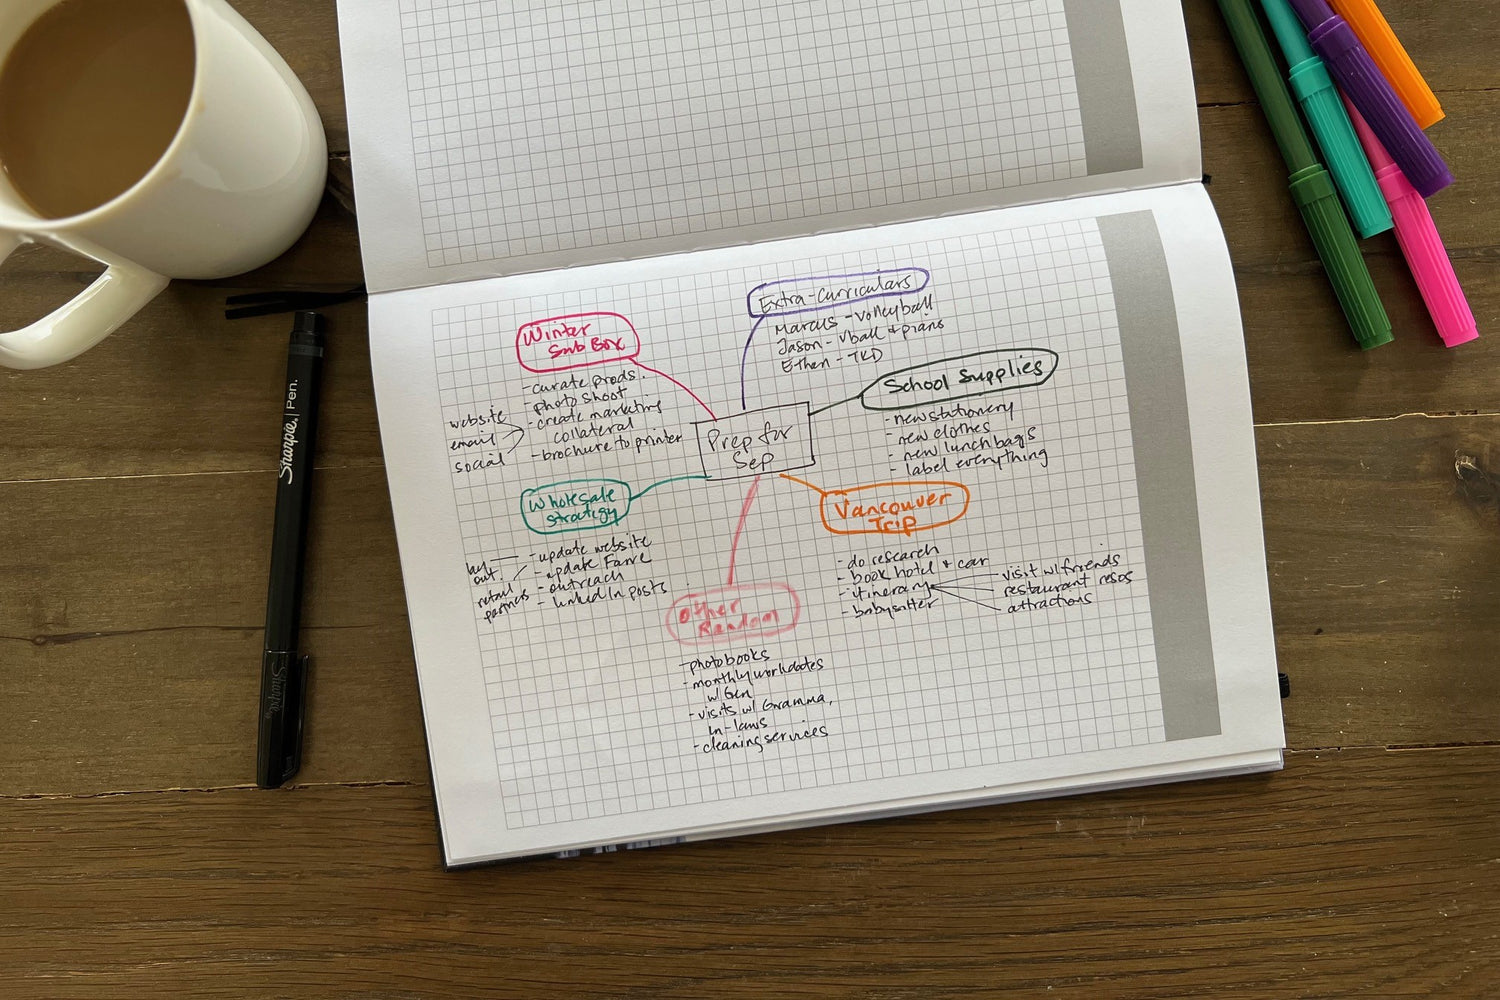 Prep for
Sep
Winter
Sub Box
- curate prods.
- photo shoot
- create marketing
collateral
- brochure to printer
website
email
social
Extra-curriculars
Marcus - volleyball
Jason - vball + piano
Ethen - TKD
School Supplies
- new stationery
- new clothes
- new lunch bags
- label everything
Wholesale
strategy
- update website
- update Faire
- outreach
- LinkedIn posts
retail
partners
Vancouver
Trip
- do research
- book hotel + car
- itinerary
- babysitter
visit w/ friends
restaurant resos
attractions
Other
Random
- photobooks
- monthly workdates
w/ Gen
- visits w/ Gramma,
in-laws
- cleaning services
Sharpie. Pen.
Sharpie